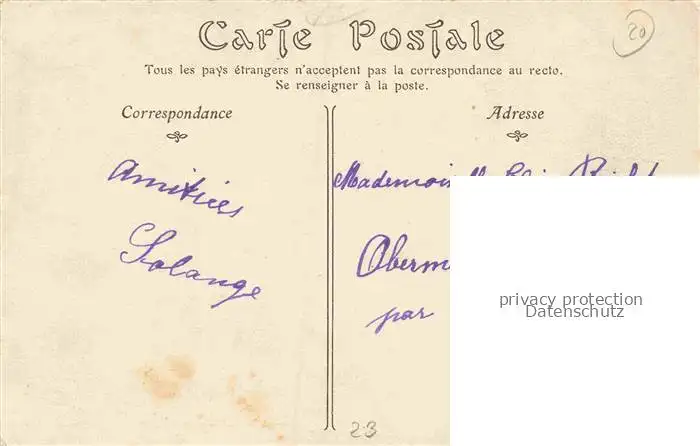 Carte Postale
20
Tous les pays étrangers n'acceptent pas la correspondance au recto.
Se renseigner à la poste.
Correspondance
Amitiés
Solange
Adresse
Oberm
par
privacy protection
Datenschutz
23